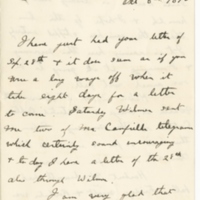 I have just had your letter of
28th & it does seem as if you
were a long ways off when it
takes eight days for a letter
to come. Saturday Wilmer sent
me two of Mr Canfields telegrams
which certainly sound encouraging
& to day I have a letter of the 28th
also through Wilmer.
I am very glad that